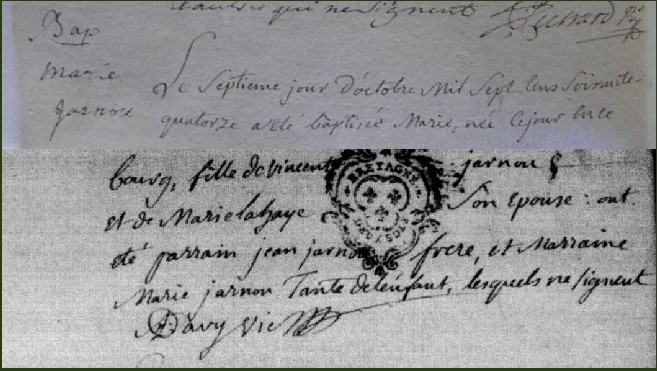 qui ne signent
Bap
marie
jarnou
Le Septieme jour D'octobre Mil Sept Cens Soixante-
quatorze a eté baptisée Marie, née Cejour En ce
bourg, fille de vincent jarnou
et de Marie lahaye Son epouse : ont
eté parrain jean jarnou frere, et Marraine
Marie jarnou Tante de lenfant, lesquels ne signent
BRETAGNE
DEUX SOLS
Davy Vic